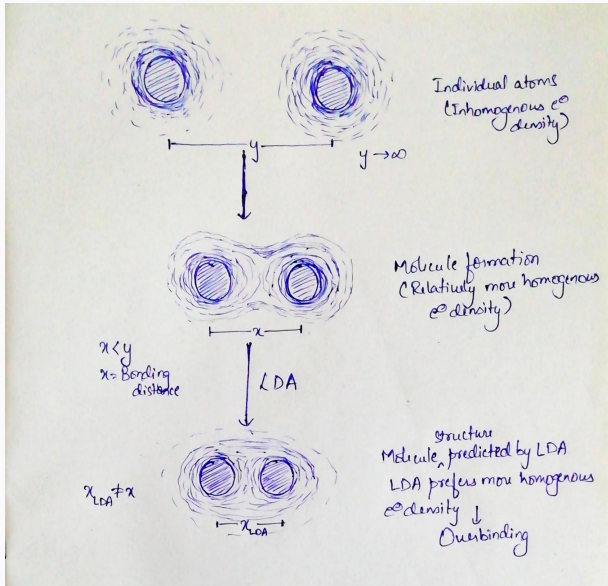 Individual atoms
(Inhomogenous e⊖
density)
y
y→∞
Molecule formation
(Relatively more homogenous
e⊖ density)
x
x<y
x= Bonding
distance
LDA
structure
Molecule ^ predicted by LDA
LDA prefers more homogenous
e⊖ density ↓
Overbinding
x_LDA ≠ x
x_LDA